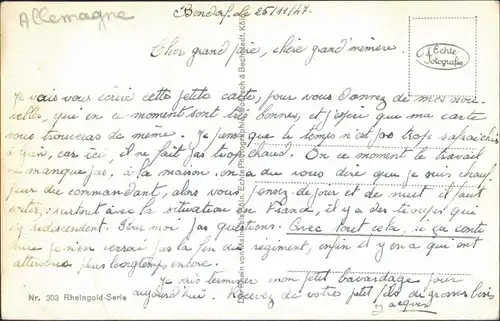 Allemagne
Bendorf. le 25/11/47.
Cher grand père, chère grand'mémere.
Je vais vous écrire cette petite carte, pour vous donnez de mes nou-
velles, qui en ce moment sont très bonnes, et j'espère que ma carte
vous trouveras de meme. Je pense que le temps n'est pas trop rafraichis
à quin, car ici, il ne fait pas trop chaud. En ce moment le travail
ne manque pas, à la maison on a du vous dire que je suis chauf-
feur du commandant, alors vous pensez de jour et de nuit il faut
sortir, surtout avec la situation en France, il y a des troupes qui
y redescendent. Hors moi pas questions. Avec tout cela, si ça conti
nue je n'en verrai pas la fin du régiment, enfin il y en a qui ont
attendrus plus longtemps encore.
Je vais terminer mon petit bavardage pour
aujourd'hui. Recevez de votre petit fils de grosses bises
Jacques
Echte
Fotografie
Nr. 303 Rheingold-Serie